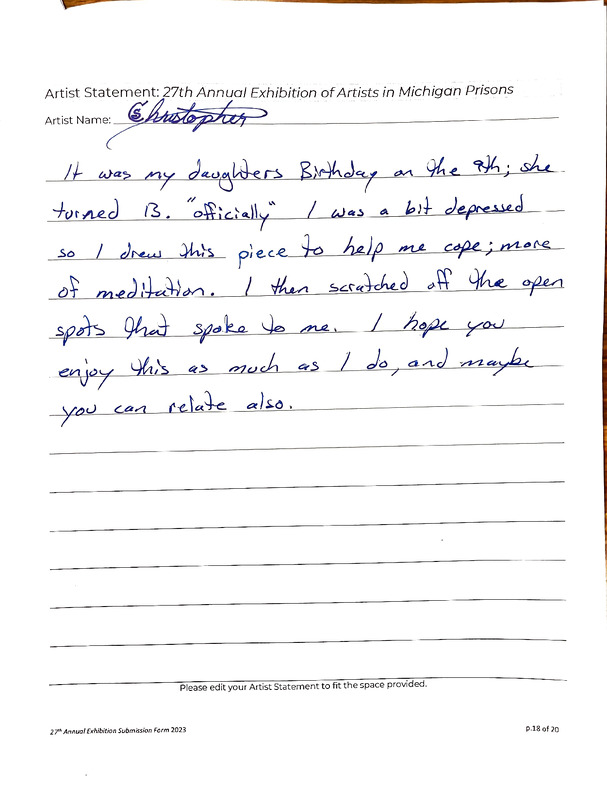 Artist Statement: 27th Annual Exhibition of Artists in Michigan Prisons
Artist Name: Christopher
It was my daughters Birthday on the 9th; she
turned 13. "officially" I was a bit depressed
so I drew this piece to help me cope; more
of meditation. I then scratched off the open
spots that spoke to me. I hope you
enjoy this as much as I do, and maybe
you can relate also.
Please edit your Artist Statement to fit the space provided.
27th Annual Exhibition Submission Form 2023
p.18 of 20